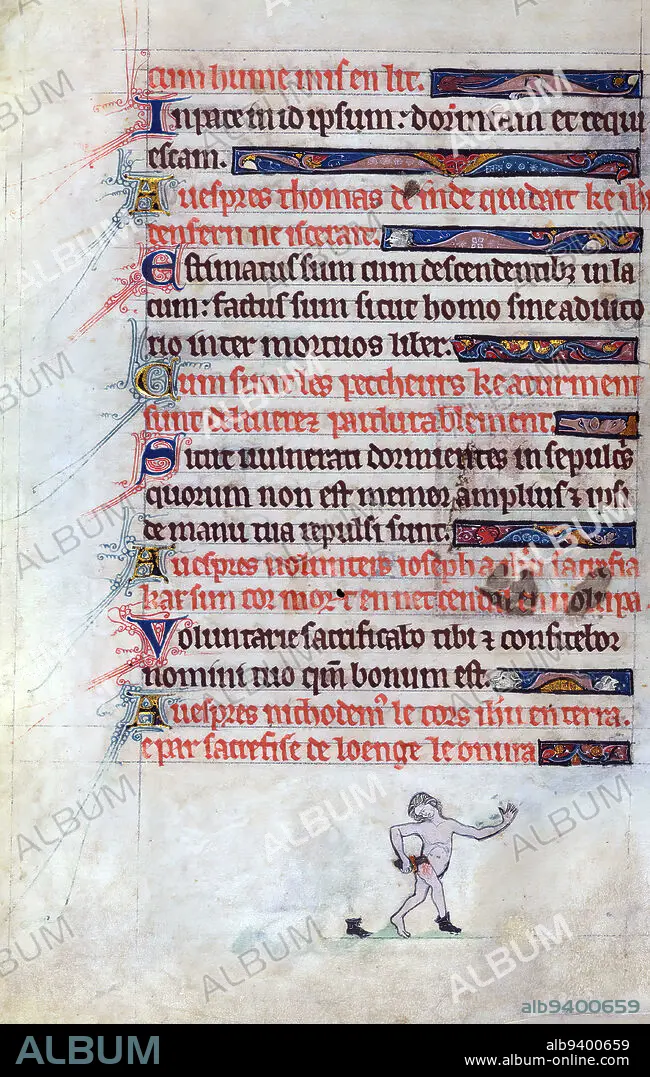 cum hume mis en lit.
In pace in id ipsum: dormiam et requi
escam.
A uespres thomas de inde quidait ke ih̄c
denfern ne isterait.
Estimatus sum cum descendentibꝫ in la
cum: factus sum sicut homo sine adiuto
rio inter mortuos liber.
Cum simples peccheurs ke a turment
sunt deliuerez pardurablement.
Sicut uulnerati dormientes in sepulcꝭ
quorum non est memor amplius ⁊ ipsi
de manu tua repulsi sunt.
A uespres uolunteis ioseph a ih̄u sacrefia
kar sun cor mort en
Voluntarie sacrificabo tibi ⁊ confitebor
nomini tuo qm̄ bonum est.
A uespres nichodemꝰ le cors ih̄u en terra.
e par sacrefise de loenge le onura
alb9400659
ALBUM
alb9400659
www.album-online.com